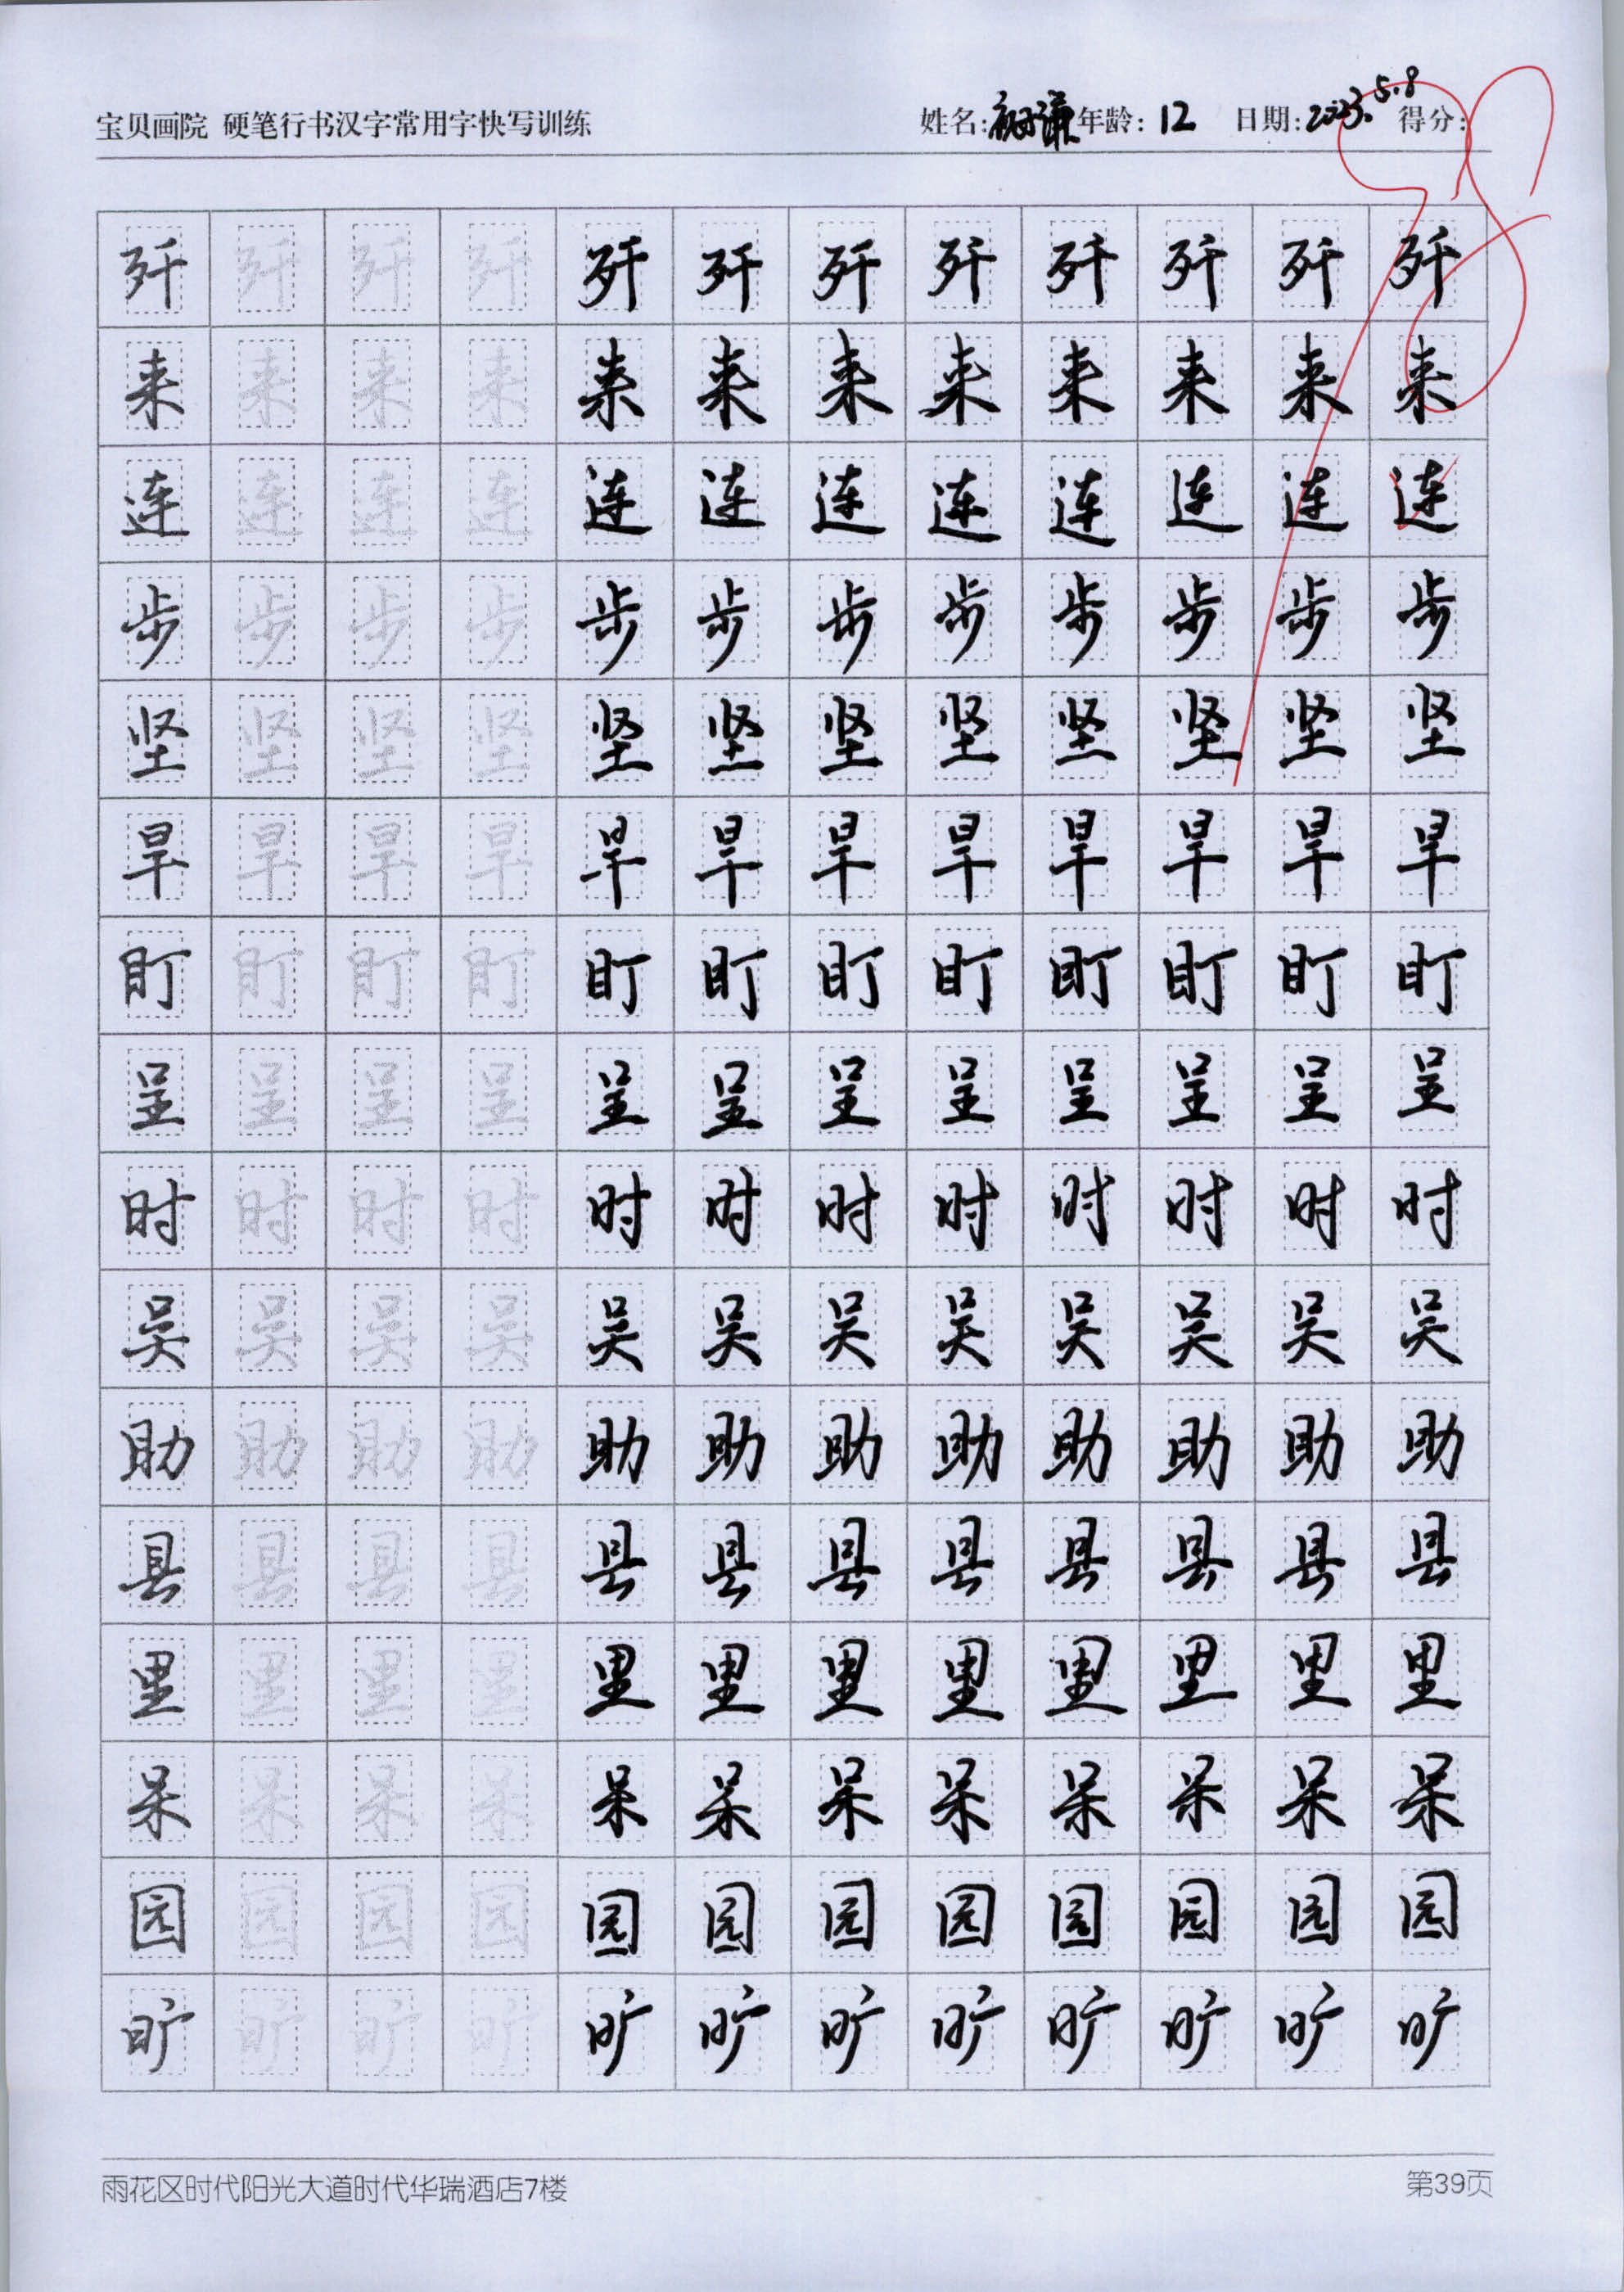 宝贝画院 硬笔行书汉字常用字快写训练 姓名: 年龄: 12 日期: 2023.5.8 得分: 98
歼 歼 歼 歼 歼 歼 歼 歼 歼 歼 歼 歼
来 来 来 来 来 来 来 来 来 来 来 来
连 连 连 连 连 连 连 连 连 连 连 连
步 步 步 步 步 步 步 步 步 步 步 步
坚 坚 坚 坚 坚 坚 坚 坚 坚 坚 坚 坚
旱 旱 旱 旱 旱 旱 旱 旱 旱 旱 旱 旱
盯 盯 盯 盯 盯 盯 盯 盯 盯 盯 盯 盯
呈 呈 呈 呈 呈 呈 呈 呈 呈 呈 呈 呈
时 时 时 时 时 时 时 时 时 时 时 时
吴 吴 吴 吴 吴 吴 吴 吴 吴 吴 吴 吴
助 助 助 助 助 助 助 助 助 助 助 助
县 县 县 县 县 县 县 县 县 县 县 县
里 里 里 里 里 里 里 里 里 里 里 里
呆 呆 呆 呆 呆 呆 呆 呆 呆 呆 呆 呆
园 园 园 园 园 园 园 园 园 园 园 园
旷 旷 旷 旷 旷 旷 旷 旷 旷 旷 旷 旷
雨花区时代阳光大道时代华瑞酒店7楼 第39页